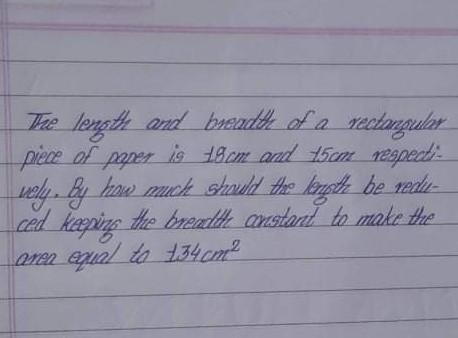 The length and breadth of a rectangular
piece of paper is 18cm and 15cm respecti-
vely. By how much should the length be redu-
ced keeping the breadth constant to make the
area equal to 134cm²